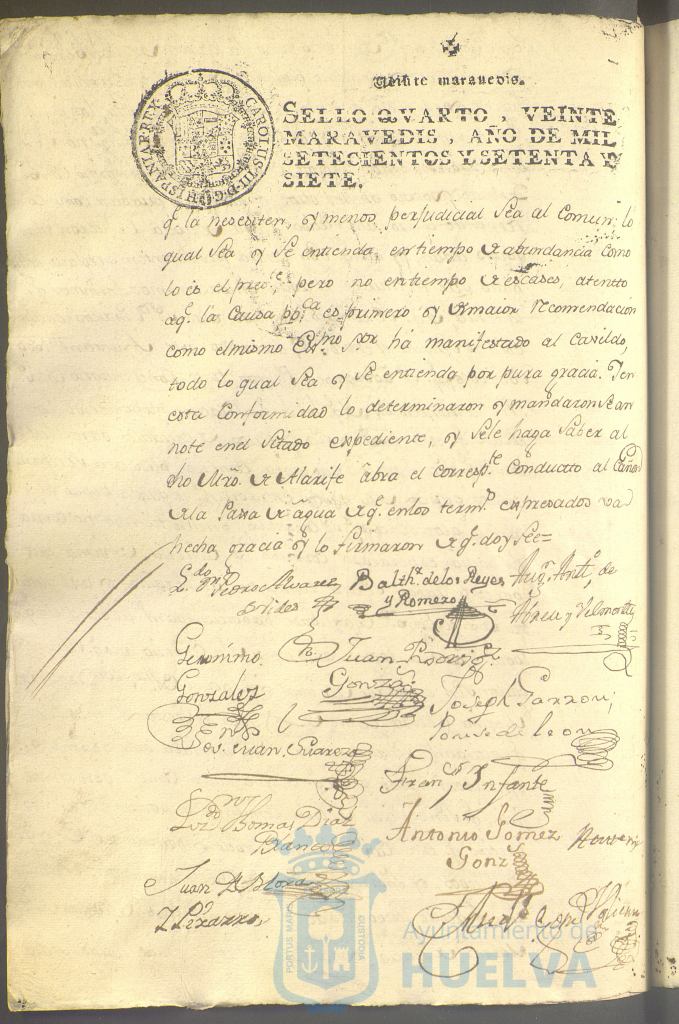 Veinte maravedis.
SELLO QVARTO, VEINTE
MARAVEDIS, AÑO DE MIL
SETECIENTOS Y SETENTA Y
SIETE.
CAROLUS III D G HISPANIAR REX
qe. la nesesiten, y menos perjudicial sea al Comun, lo
qual sea y se entienda, en tiempo de abundancia como
lo es el pres.te, pero no en tiempo de escases, atento
a q.e la Causa pp.ca es primero y de maior recomendacion
como el mismo Ex.mo S.or ha manifestado al Cavildo,
todo lo qual sea y se entienda por pura gracia. Y en
esta Conformidad lo determinaron y mandaron se an
note en el sitado expediente, y se le haga saber al
dho Mro. de Alarife abra el corresp.te Conducto al Cañon
de la Paxa de agua de q.e en los term.s expresados va
hecha gracia y lo firmaron de q.e doy fee=
L.do Dn. Pedro Alvarez
Balth.r de los Reyes
y Romero
Aug.n Ant.o de
Abreu y
Geronimo
Gonzalez
Juan Rodrig.z
Gonza.
Joseph Garzon,
Ponse de leon
Juan Suarez
Fran.co Infante
Thomas Diaz
Blanco
Antonio Gomez
Gonz
Juan de Mora
Y Pizarro
PORTUS MARIS
CUSTODIA
Ayuntamiento de
HUELVA